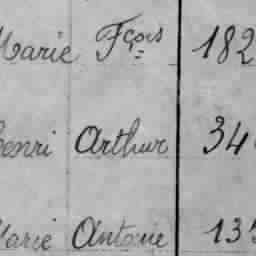 Marie Fçois 182
Henri Arthur 34
Marie Antoine 135